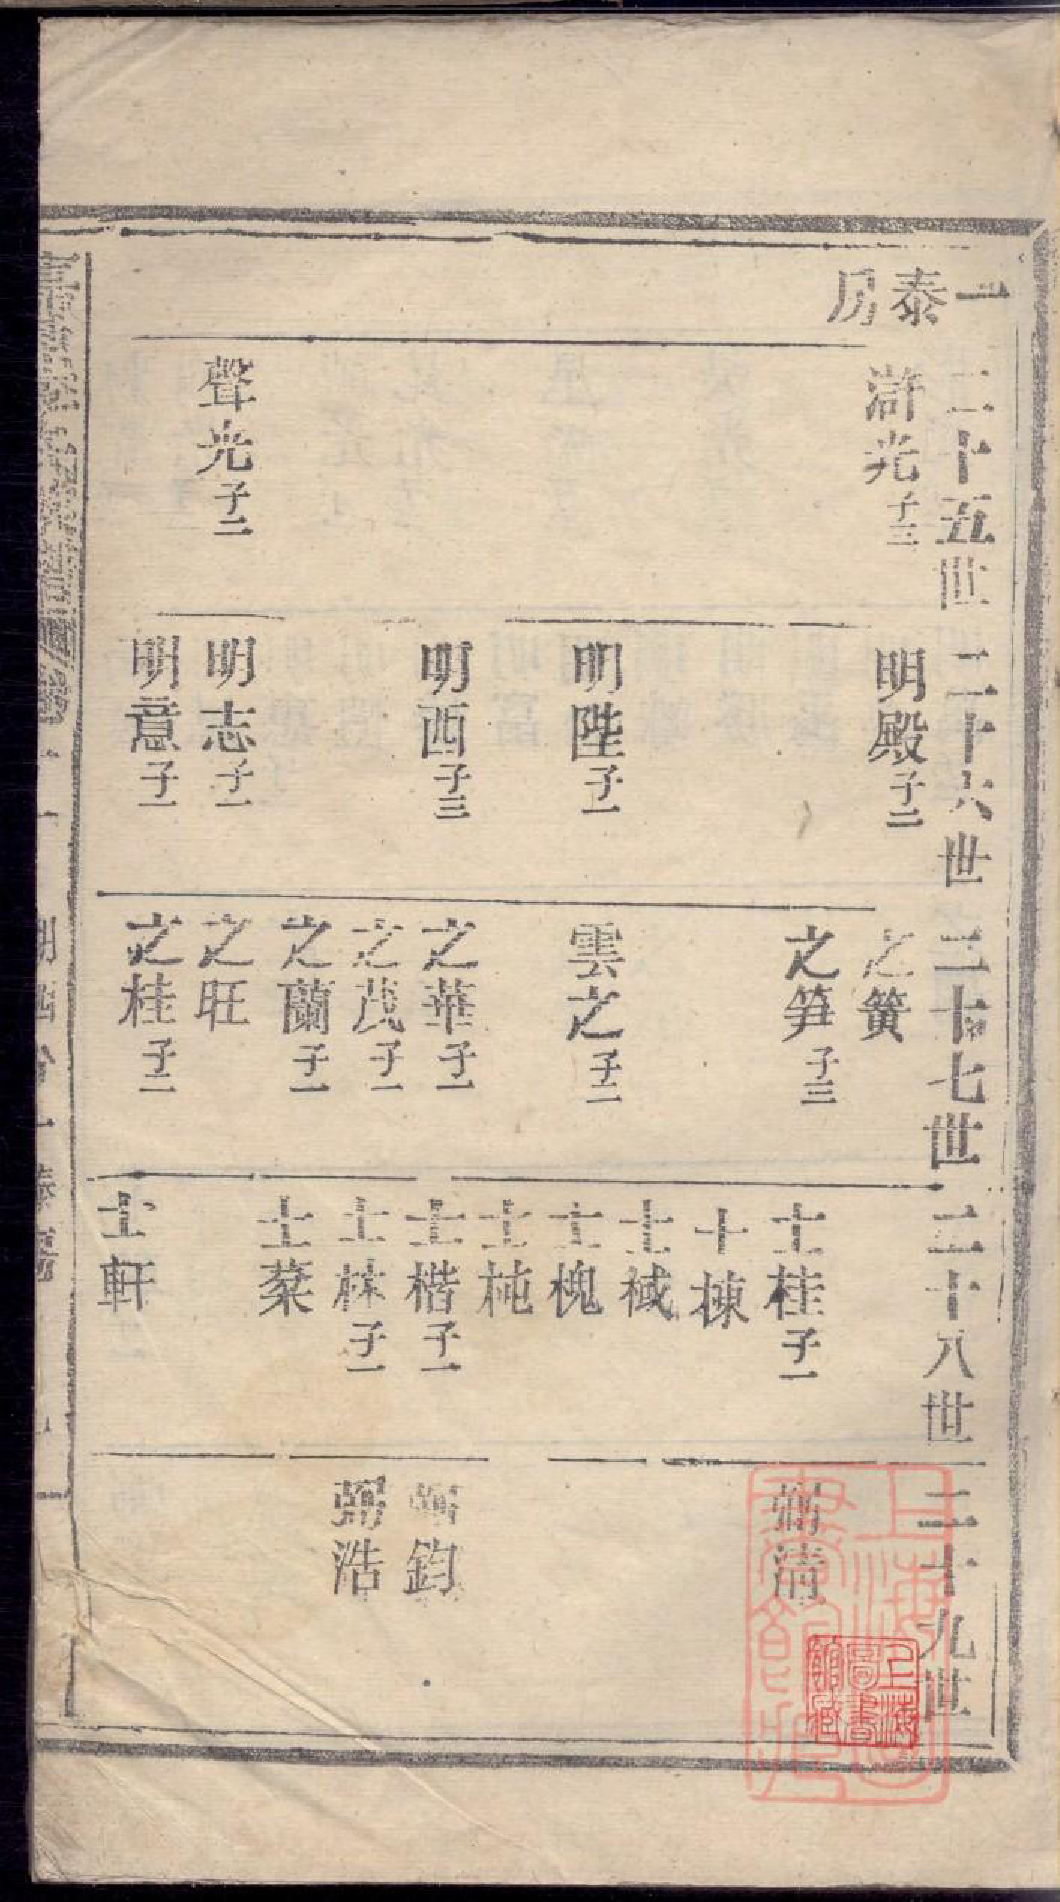 一泰房
二十五世
滸光子三
聲光子二
二十六世
明殿子二
明陛子一
明西子三
明志子一
明意子一
二十七世
之簧
之笋子三
雲之子二
之華子一
之茂子一
之蘭子一
之旺
之桂子二
二十八世
士桂子一
士棟
士棫
士槐
士杶
士楷子一
士林子一
士棻
士軒
二十九世
弼淸
弼鈞
弼浩
上海圖書館藏